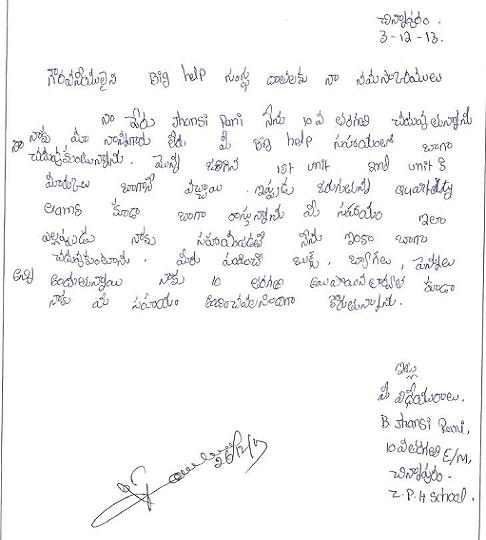 చిన్నాపురం.
3-12-13.
గౌరవనీయులైన Big help సంస్థ దాతలకు నా నమస్కారములు
నా పేరు Jhansi Rani నేను 10వ తరగతి చదువుతున్నాను
నాకు మా నాన్నగారు లేరు మీ Big help సహాయంతో బాగా
చదువుకుంటున్నాను. మొన్న జరిగిన 1st unit 2nd unit కి
మార్కులు బాగానే వచ్చాయి. ఇప్పుడు జరుగుతున్న quarterly
exams కూడా బాగా రాస్తున్నాను మీ సహాయం ఇలా
ఎల్లప్పుడు నాకు సహాయపడితే నేను ఇంకా బాగా
చదువుకుంటాను. మీరు పంపించే బుక్స్, బ్యాగులు, పెన్నులు
అన్ని అందుతున్నాయి నాకు 10 తరగతి అయిపోయిన తర్వాత కూడా
నాకు మీ సహాయం అందించవలసిందిగా కోరుతున్నాను.
ఇట్లు
మీ విధేయురాలు.
B Jhansi Rani,
10వ తరగతి E/M,
చిన్నాపురం
Z.P.H School.